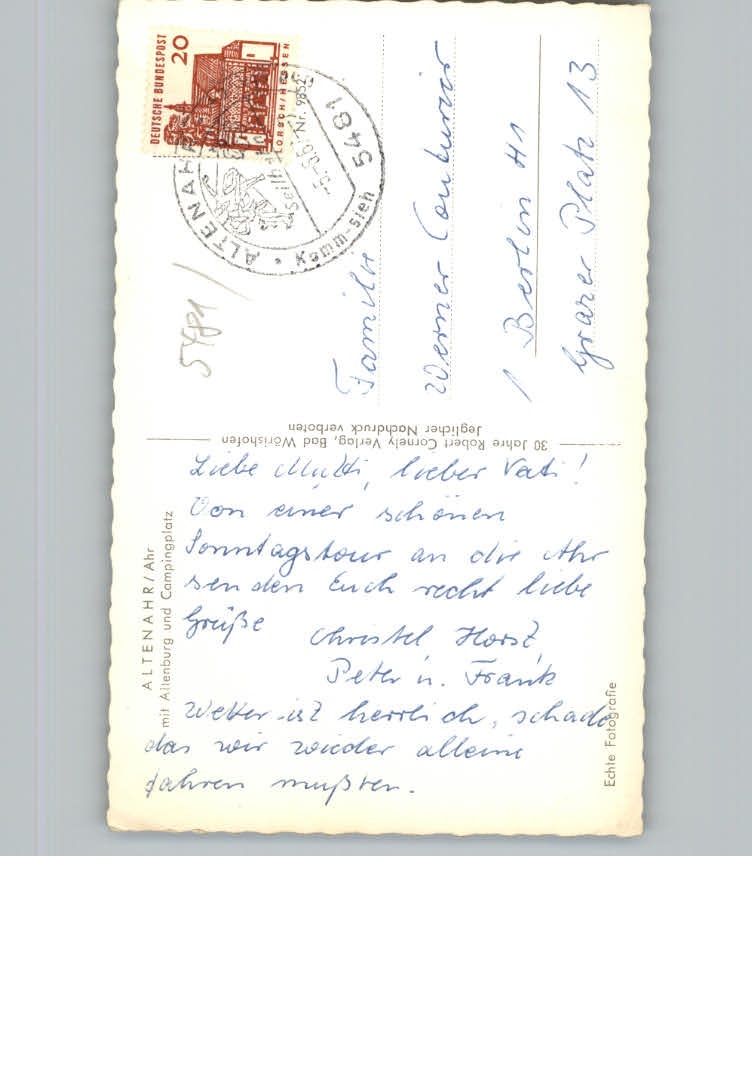 DEUTSCHE BUNDESPOST
20
LORSCH/HESSEN
Nr. 9852
ALTENAHR
5481
Komm-sieh
5481
Familie
Werner Couturier
1 Berlin 41
Grazer Platz 13
30 Jahre Robert Cornely Verlag, Bad Wörishofen
Jeglicher Nachdruck verboten
ALTENAHR/Ahr
mit Altenburg und Campingplatz
Liebe Mutti, lieber Vati!
Von einer schönen
Sonntagstour an die Ahr
senden Euch recht liebe
Grüße
Christel Horst,
Peter u. Frank
Wetter ist herrlich, schade
das wir wieder alleine
fahren mußten.
Echte Fotografie